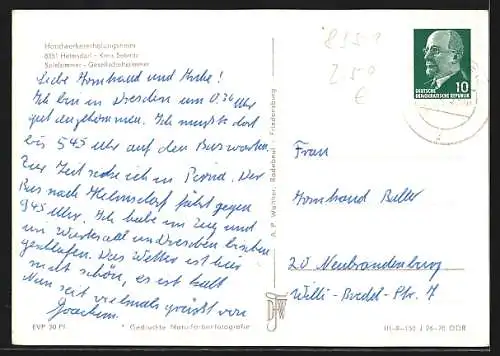 Handwerkererholungsheim
8351 Helmsdorf - Kreis Sebnitz
Spielzimmer - Gesellschaftszimmer
8351
2.50
€
10
DEUTSCHE
DEMOKRATISCHE REPUBLIK
Liebe und
Ich bin in Dresden um 0.36 Uhr
gut angekommen. Ich musste dort
bis 5 45 Uhr auf den Bus warten.
Zur Zeit sitze ich in Pirna. Der
Bus nach Helmsdorf fährt gegen
9 45 Uhr. Ich habe im Zug und
im Wartesaal in Dresden bisschen
geschlafen. Das Wetter ist hier
nicht schön, es ist kalt
Nun seit vielmals grüßt von
Joachim.
A. P. Walther, Radebeul - Friedensburg
Frau
20 Neubrandenburg
Willi-Bredel-Str. 7
EVP 20 Pf.
* Gedruckte Naturfarbenfotografie
III-8-150 J 26-70 DDR